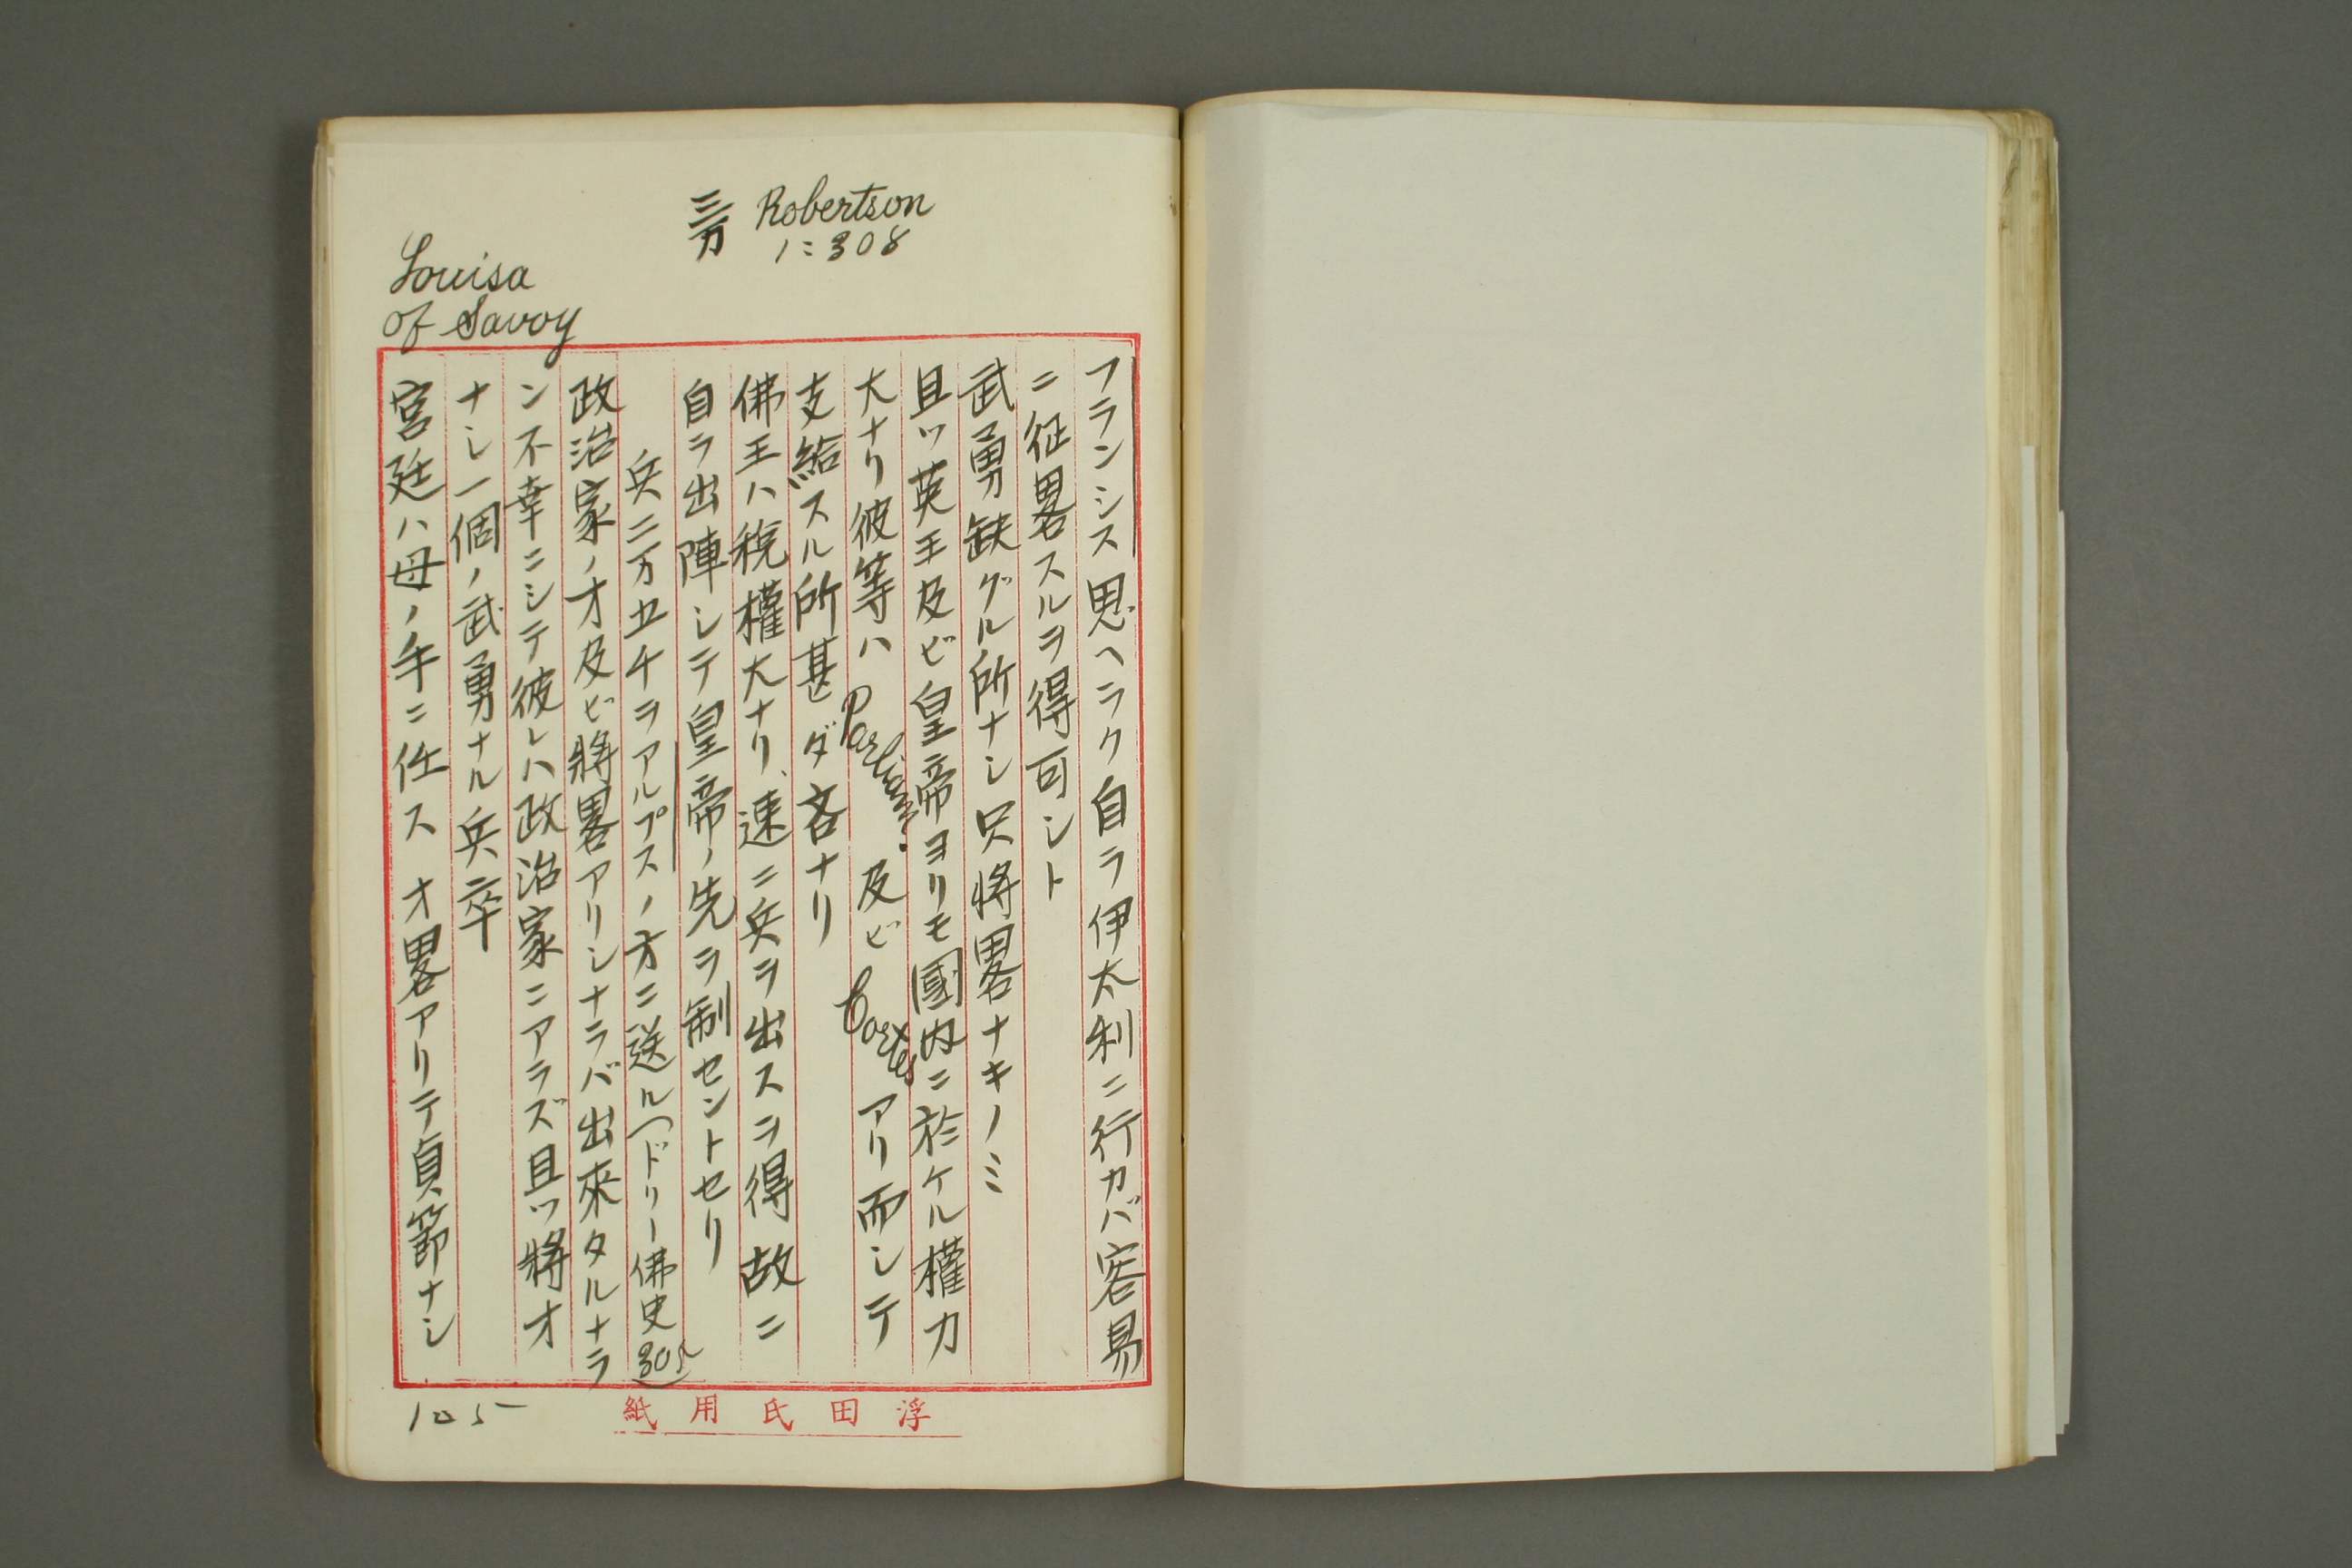 三万 Robertson
1:308
Louisa
of Savoy
フランシス思ヘラク自ラ伊太利ニ行カバ容易
ニ征畧スルヲ得可シト
武勇缺グル所ナシ只將畧ナキノミ
且ツ英王及ビ皇帝ヨリモ國内ニ於ケル權力
大ナリ彼等ハ Parliam. 及ビ Cortes アリ而シテ
支給スル所甚ダ吝ナリ
佛王ハ稅權大ナリ、速ニ兵ヲ出スヲ得故ニ
自ラ出陣シテ皇帝ノ先ヲ制セントセリ
兵三万五千ヲアルプスノ方ニ送ル(ドリー佛史305)
政治家ノ才及ビ將畧アリシナラバ出來タルナラ
ン不幸ニシテ彼レハ政治家ニアラズ且ツ將才
ナシ一個ノ武勇ナル兵卒
宮廷ハ母ノ手ニ任ス 才畧アリテ貞節ナシ
105
浮田氏用紙